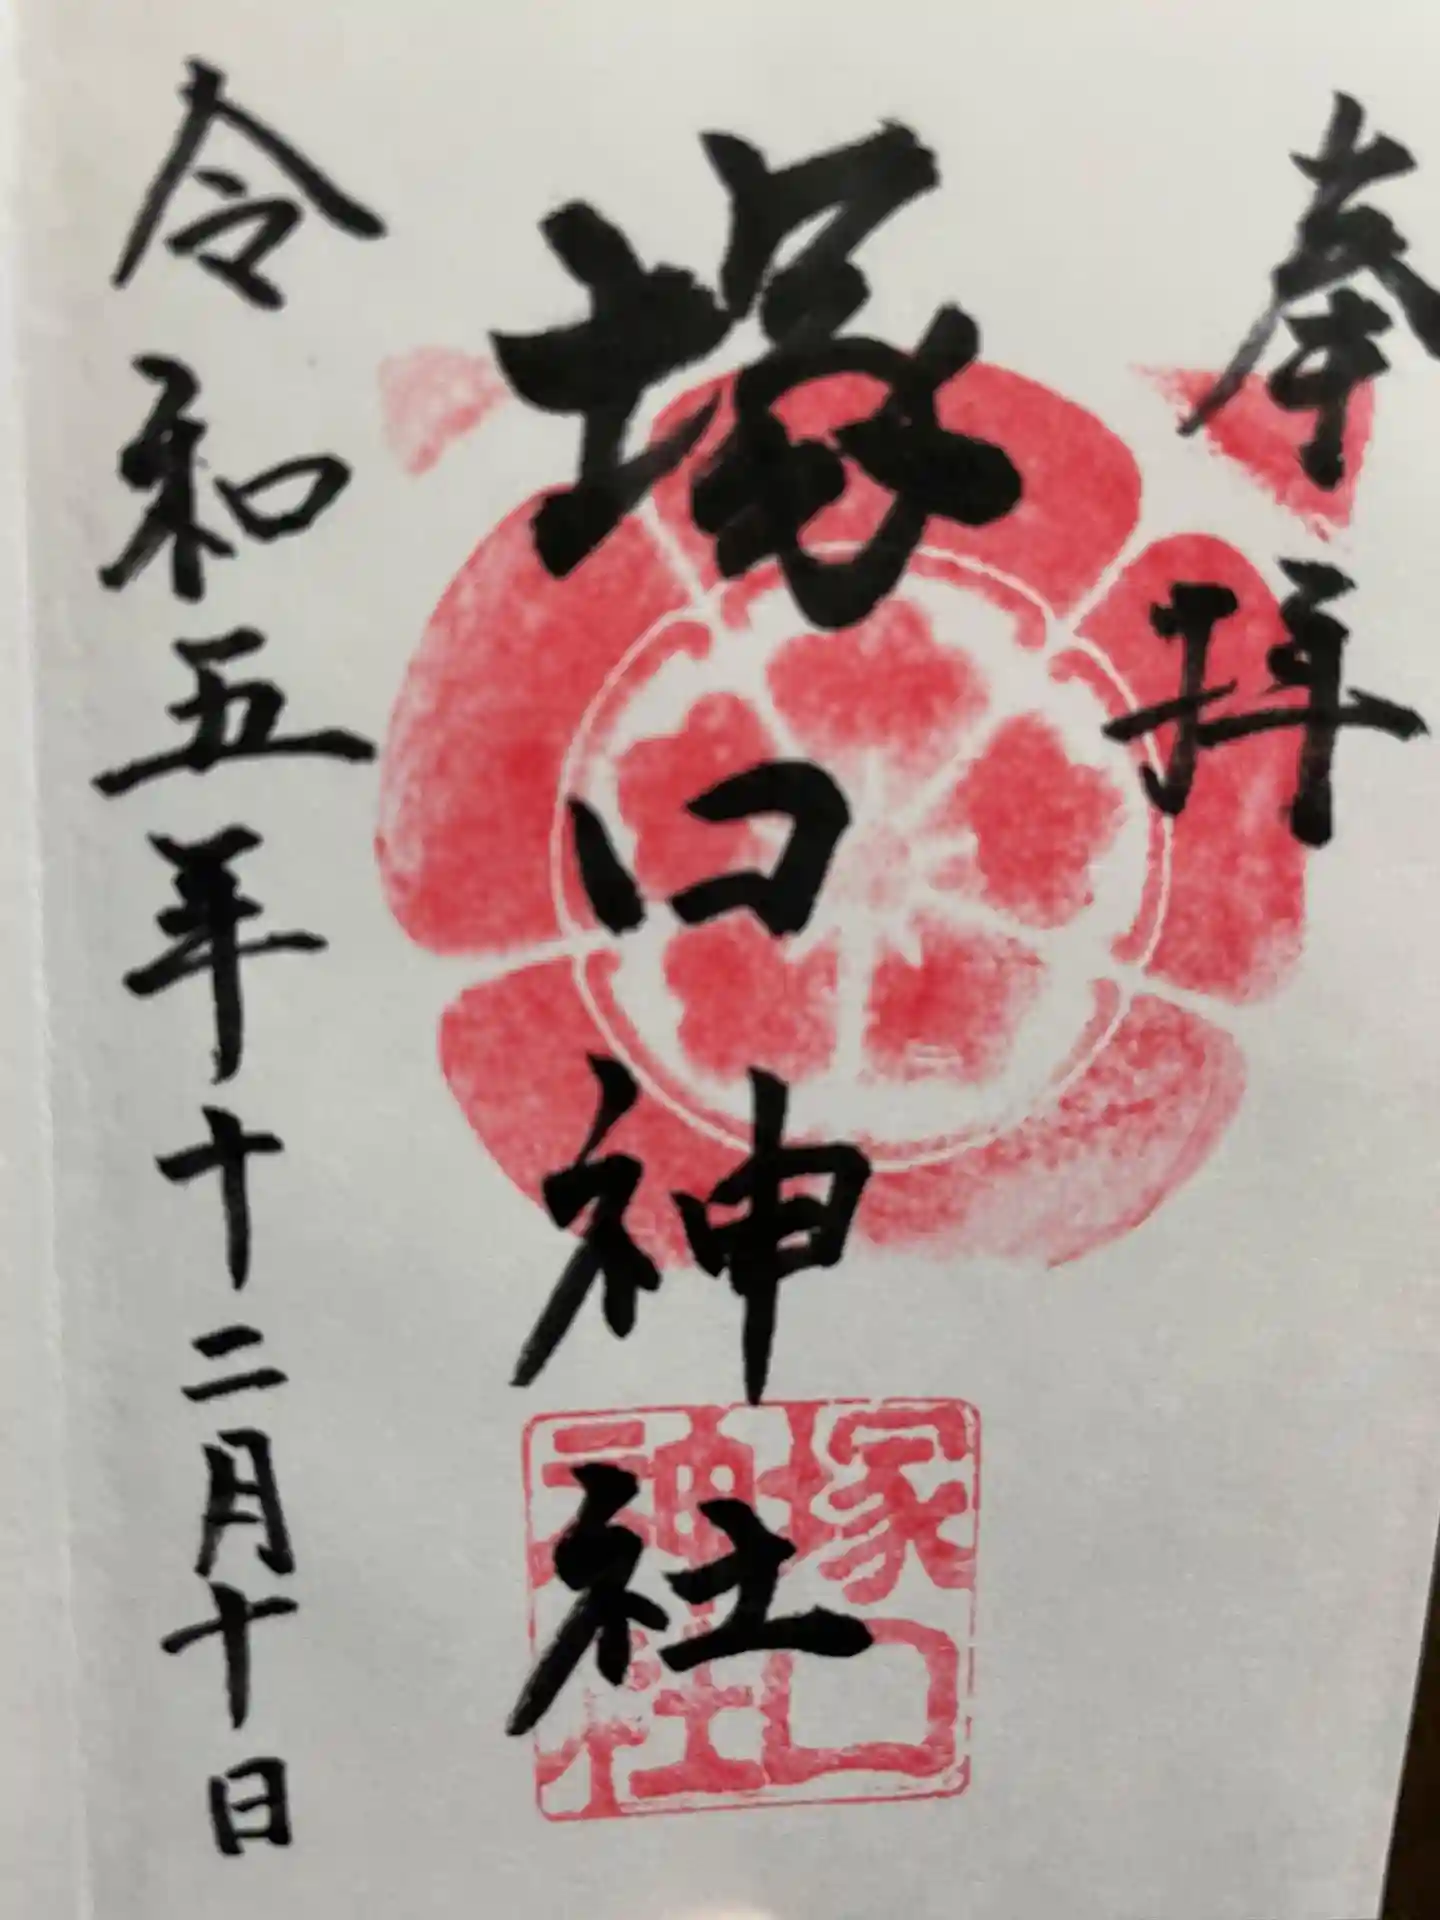 奉拝
塚口神社
塚口
神社
令和五年十二月十日